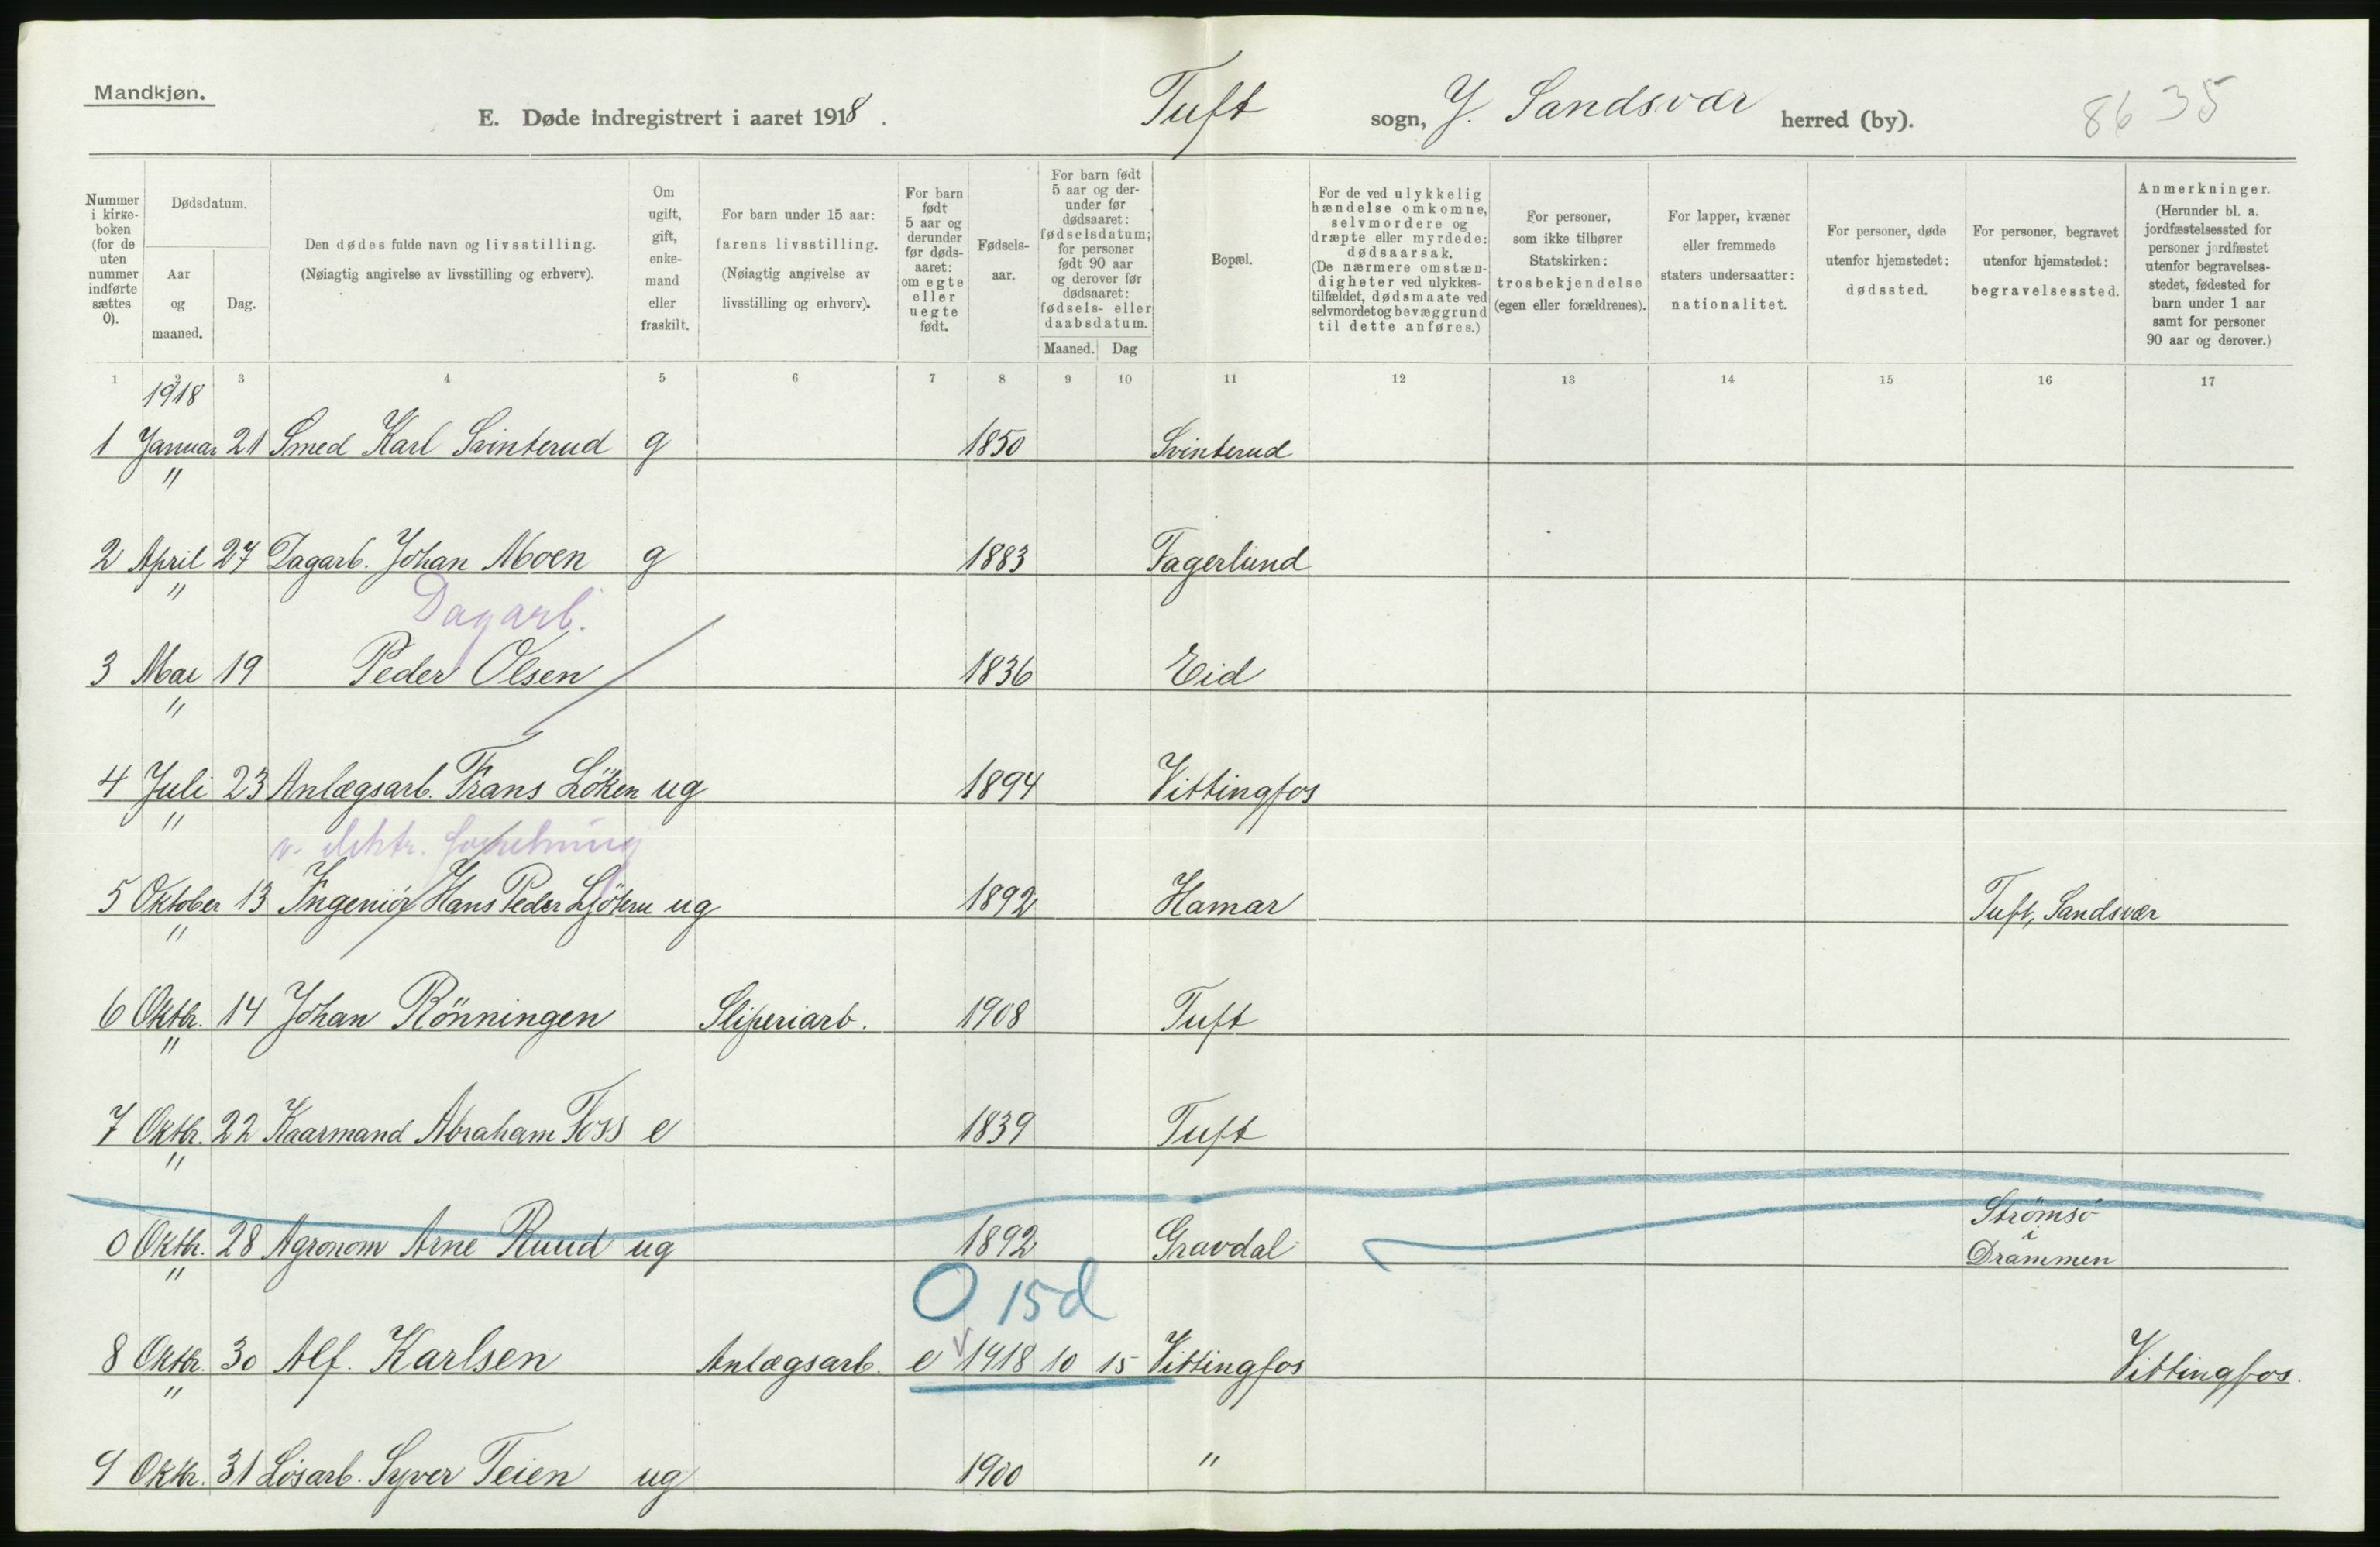 Mandkjøn.
E. Døde indregistrert i aaret 1918.
Tuft sogn, Y. Sandsvær herred (by).
86 35
Nummer i kirkeboken (for de uten nummer indførte sættes 0).
Dødsdatum.
Aar og maaned.
Dag.
Den dødes fulde navn og livsstilling.
(Nøiagtig angivelse av livsstilling og erhverv).
Om ugift, gift, enkemand eller fraskilt.
For barn under 15 aar: farens livsstilling.
(Nøiagtig angivelse av livsstilling og erhverv).
For barn født 5 aar og derunder før dødsaaret: om egte eller uegte født.
Fødselsaar.
For barn født 5 aar og derunder før dødsaaret: fødselsdatum; for personer født 90 aar og derover før dødsaaret: fødsels- eller daabsdatum.
Maaned. Dag
Bopæl.
For de ved ulykkelig hændelse omkomne, selvmordere og dræpte eller myrdede: dødsaarsak.
(De nærmere omstændigheter ved ulykkestilfældet, dødsmaate ved selvmordet og bevæggrund til dette anføres.)
For personer, som ikke tilhører Statskirken: trosbekjendelse (egen eller forældrenes).
For lapper, kvæner eller fremmede staters undersaatter: nationalitet.
For personer, døde utenfor hjemstedet: dødssted.
For personer, begravet utenfor hjemstedet: begravelsessted.
Anmerkninger.
(Herunder bl. a. jordfæstelsessted for personer jordfæstet utenfor begravelsesstedet, fødested for barn under 1 aar samt for personer 90 aar og derover.)
1 2 3 4 5 6 7 8 9 10 11 12 13 14 15 16 17
1918
1 Januar 21 Smed Karl Svinterud g 1850 Svinterud
"
2 April 27 Dagarb. Johan Moen g 1883 Fagerlund
"
Dagarb.
3 Mai 19 Peder Olsen 1836 Eid
"
4 Juli 23 Anlægsarb. Frans Löken ug 1894 Vittingfos
"
v. elektr. forretning
5 Oktober 13 Ingeniör Hans Peder ug 1892 Hamar Tuft, Sandsvær
"
6 Oktbr. 14 Johan Rönningen Sliperiarb. 1908 Tuft
"
7 Oktbr. 22 Kaarmand Abraham Foss e 1839 Tuft
"
0 Oktbr. 28 Agronom Arne Ruud ug 1892 Gravdal Strömsö i Drammen
"
0 15d
8 Oktbr. 30 Alf. Karlsen Anlægsarb. e 1918 10 15 Vittingfos Vittingfos.
"
9 Oktbr. 31 Lösarb. Syver Teien ug 1900 "